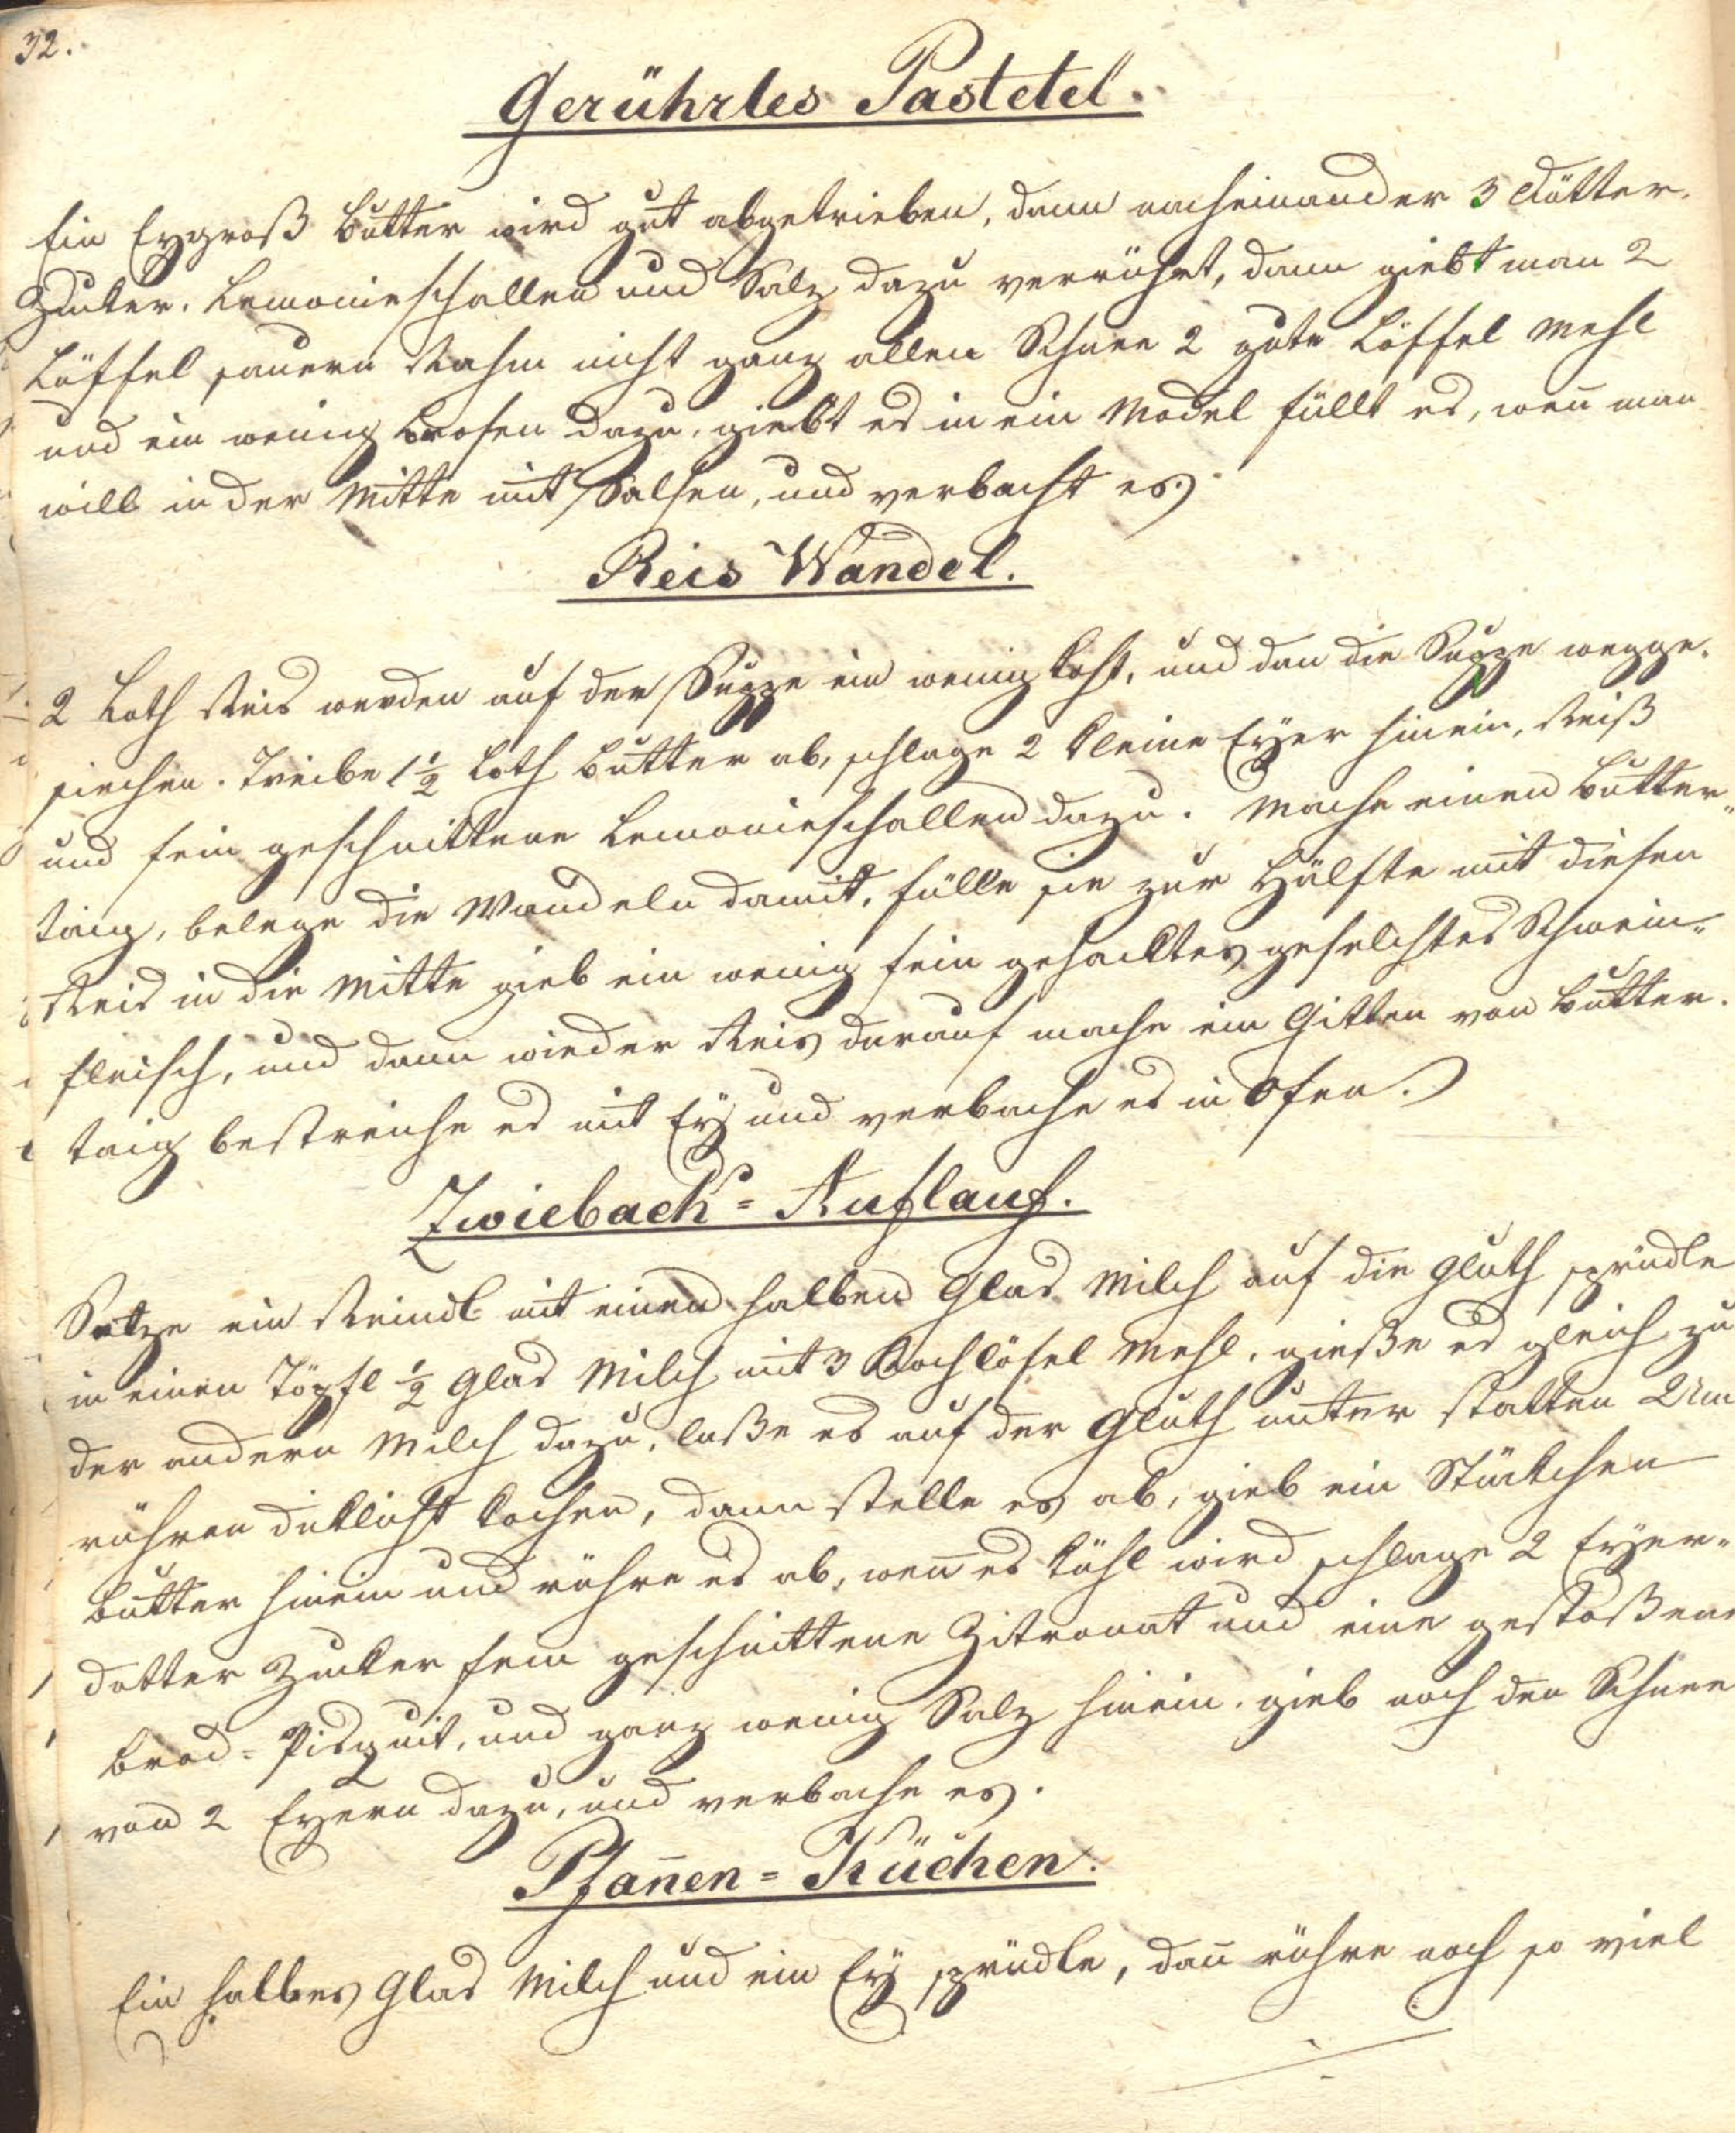 32.
Gerührtes Pastetel.
Ein Eygroß Butter wird gut abgetrieben, dann nacheinander 3 Dötter.
Zucker. Lemonieschallen und Salz dazu verrührt, dann giebt man 2
Löffel sauern Rahm nicht ganz allen Schnee 2 gute Löffel Mehl
und ein wenig Brosen dazu, giebt es in ein Model füllt es, weñ man
will in der Mitte mit Salsen, und verbacht es.
Reis Wandel.
2 Loth Reis werden auf der Suppe ein wenig kocht, und dan die Suppe wegge¬
siechen. Treibe 1 1/2 Loth Butter ab, schlage 2 kleine Eyer hinein, Reiß
und fein geschnittene Lemonieschallen dazu. Mache einen Butter¬
taig, belege die Wandeln damit, fülle sie zur Hälfte mit diesen
Reis in die Mitte gieb ein wenig fein gehacktes geselchtes Schwein¬
fleisch, und dann wieder Reis darauf mache ein Gitter von Butter¬
taig bestreiche es mit Ey und verbache es in Ofen.
Zwieback=Auflauf.
Setze ein Reindl mit einen halben Glas Milch auf die Gluth sprudle
in einen Töpfl 1/2 Glas Milch mit 3 Kochlöfel Mehl. gieße es gleich zu
der andern Milch dazu, laße es auf der Gluth unter statten Um
rühren dicklicht kochen, dann stelle es ab, gieb ein Stückchen
Butter hinein und rühre es ab, weñ es kühl wird schlage 2 Eyer¬
dotter Zucker fein geschnittene Zitronat und eine gestoßene
Brod=Pisquit, und ganz wenig Salz hinein. gieb noch den Schnee
von 2 Eyern dazu, und verbache es.
Pfañen=Küchen.
Ein halbes Glas Milch und ein Ey sprudle, dañ rühre noch so viel